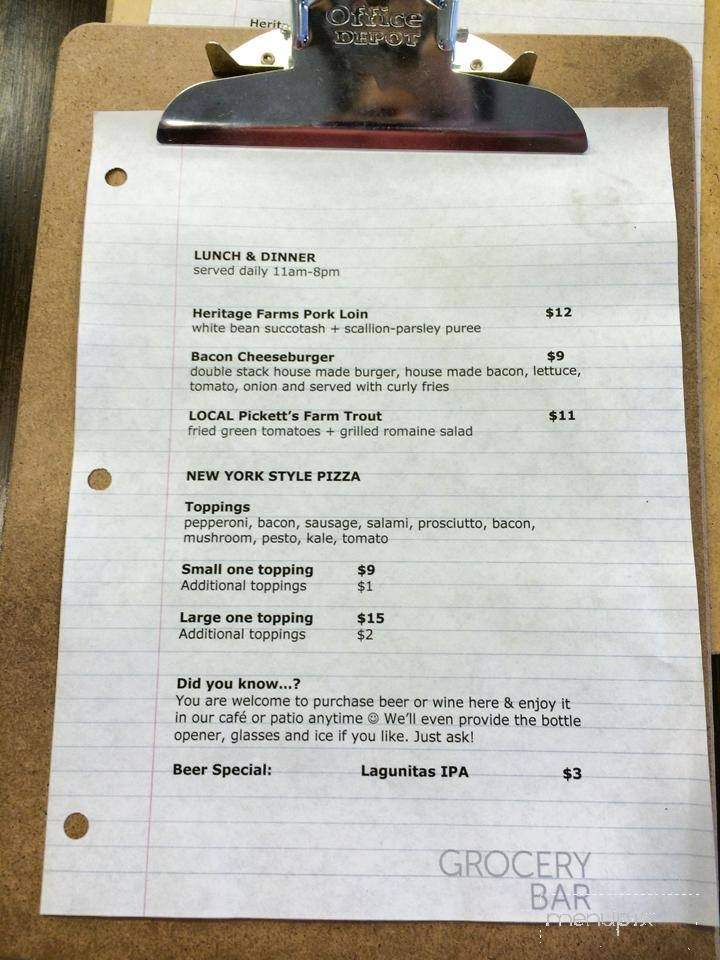 Office
DEPOT
Herit
LUNCH & DINNER
served daily 11am-8pm
Heritage Farms Pork Loin $12
white bean succotash + scallion-parsley puree
Bacon Cheeseburger $9
double stack house made burger, house made bacon, lettuce,
tomato, onion and served with curly fries
LOCAL Pickett's Farm Trout $11
fried green tomatoes + grilled romaine salad
NEW YORK STYLE PIZZA
Toppings
pepperoni, bacon, sausage, salami, prosciutto, bacon,
mushroom, pesto, kale, tomato
Small one topping $9
Additional toppings $1
Large one topping $15
Additional toppings $2
Did you know...?
You are welcome to purchase beer or wine here & enjoy it
in our café or patio anytime ☺ We'll even provide the bottle
opener, glasses and ice if you like. Just ask!
Beer Special: Lagunitas IPA $3
GROCERY
BAR
menupix